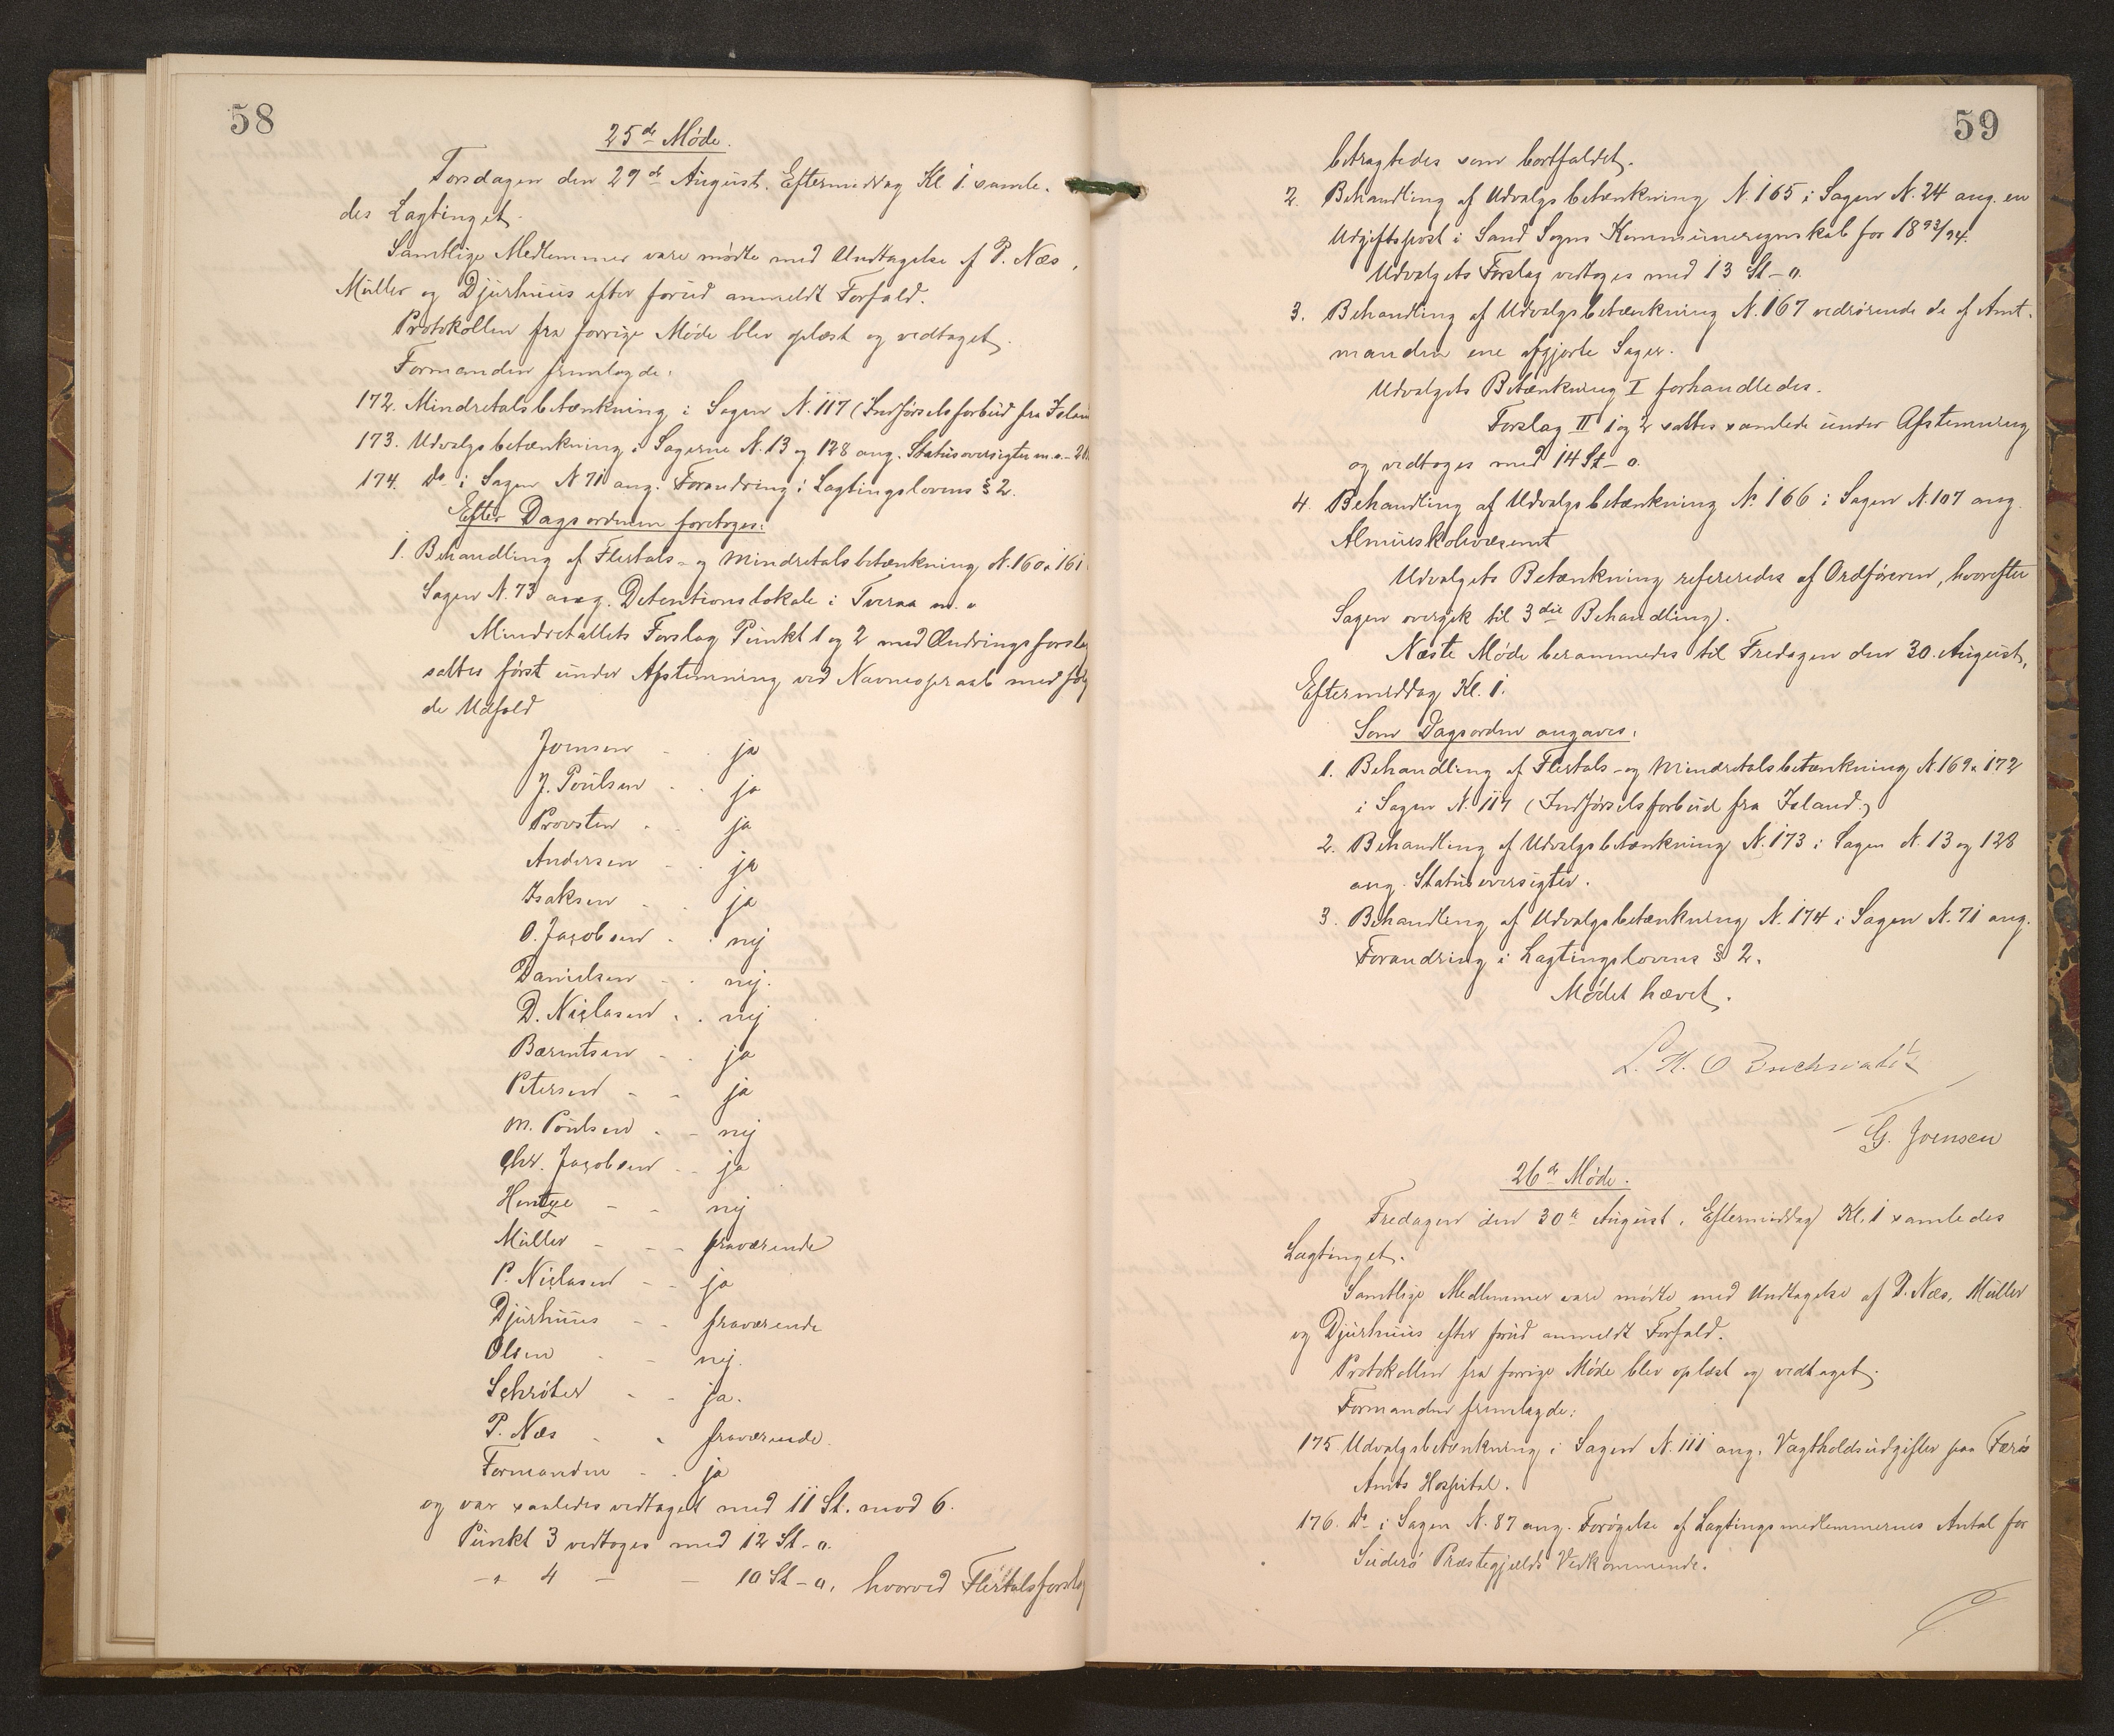 58
25de Møde.
Torsdagen den 29de August. Eftermiddag Kl 1. samle-
des Lagtinget.
Samtlige Medlemmer vare mødte med Undtagelse af P. Næs,
Müller og Djurhuus efter forud anmeldt Forfald.
Protokollen fra forrige Møde blev oplæst og vedtaget.
Formanden fremlagde:
172. Mindretalsbetænkning i Sagen N. 117 (Indførselsforbud fra Islan
173. Udvalgsbetænkning i Sagerne N. 13 og 128 ang. Statusoversigter m.v.
174. Do i Sagen N 71 ang. Forandring i Lagtingslovens § 2.
Efter Dagsordenen foretoges:
1. Behandling af Flertals- og Mindretalsbetænkning N. 160 & 161
Sagen N. 73 ang. Detentionslokale i Tveraa m.v
Mindretallets Forslag Punkt 1 og 2 med Ændringsforslag
sattes først under Afstemning ved Navneopraab med følg
de Udfald
Joensen - - ja
J. Poulsen - - ja
Provsten - - ja
Andersen - - ja
Isaksen - - ja
O. Jacobsen - - nej
Danielsen - - nej.
D. Niclasen - - nej
Bærentsen - - ja
Petersen - - ja
M. Poulsen - - nej
Chr. Jacobsen - - ja
Hentze - - nej
Müller - - - fraværende
P. Niclasen - - ja
Djurhuus - - fraværende
Olsen - - nej.
Schrøter - - ja.
P. Næs - - fraværende.
Formanden - - ja
og var saaledes vedtaget med 11 St. mod 6.
Punkt 3 vedtoges med 12 St - 0.
- " 4 - - 10 St - 0, hvorved Flertalsforslag
59
betragtedes som bortfaldet.
2. Behandling af Udvalgsbetænkning N. 165 i Sagen N. 24 ang. en
Udgiftspost i Sand Sogns Kommuneregnskab for 1893/94.
Udvalgets Forslag vedtoges med 13 St - 0.
3. Behandling af Udvalgsbetænkning N. 167 vedrørende de af Amt-
manden ene afgjorte Sager.
Udvalgets Betænkning I forhandledes.
Forslag II 1 og 2 sattes samlede under Afstemning
og vedtoges med 14 St - 0.
4. Behandling af Udvalgsbetænkning N. 166 i Sagen N. 107 ang.
Almueskolevæsenet
Udvalgets Betænkning refereredes af Ordføreren, hvorefter
Sagen overgik til 3die Behandling.
Næste Møde berammedes til Fredagen den 30. August,
Eftermiddag Kl. 1.
Som Dagsorden angaves:
1. Behandling af Flertals- og Mindretalsbetænkning N. 169 & 172
i Sagen N. 117 (Indførselsforbud fra Island.)
2. Behandling af Udvalgsbetænkning N. 173 i Sagen N. 13 og 128
ang. Statusoversigter.
3. Behandling af Udvalgsbetænkning N. 174 i Sagen N. 71 ang.
Forandring i Lagtingslovens § 2.
Mødet hævet.
L. H. O Buchwaldt
G. Joensen
26de Møde.
Fredagen den 30te August, Eftermiddag Kl. 1 samledes
Lagtinget.
Samtlige Medlemmer vare mødte med Undtagelse af P. Næs, Müller
og Djurhuus efter forud anmeldt Forfald.
Protokollen fra forrige Møde blev oplæst og vedtaget.
Formanden fremlagde:
175 Udvalgsbetænkning i Sagen N. 111 ang. Vagtholdsudgifter paa Færø
Amts Hospital.
176. Do i Sagen N. 87 ang. Forøgelse af Lagtingsmedlemmernes Antal for
Suderø Præstegjælds Vedkommende.